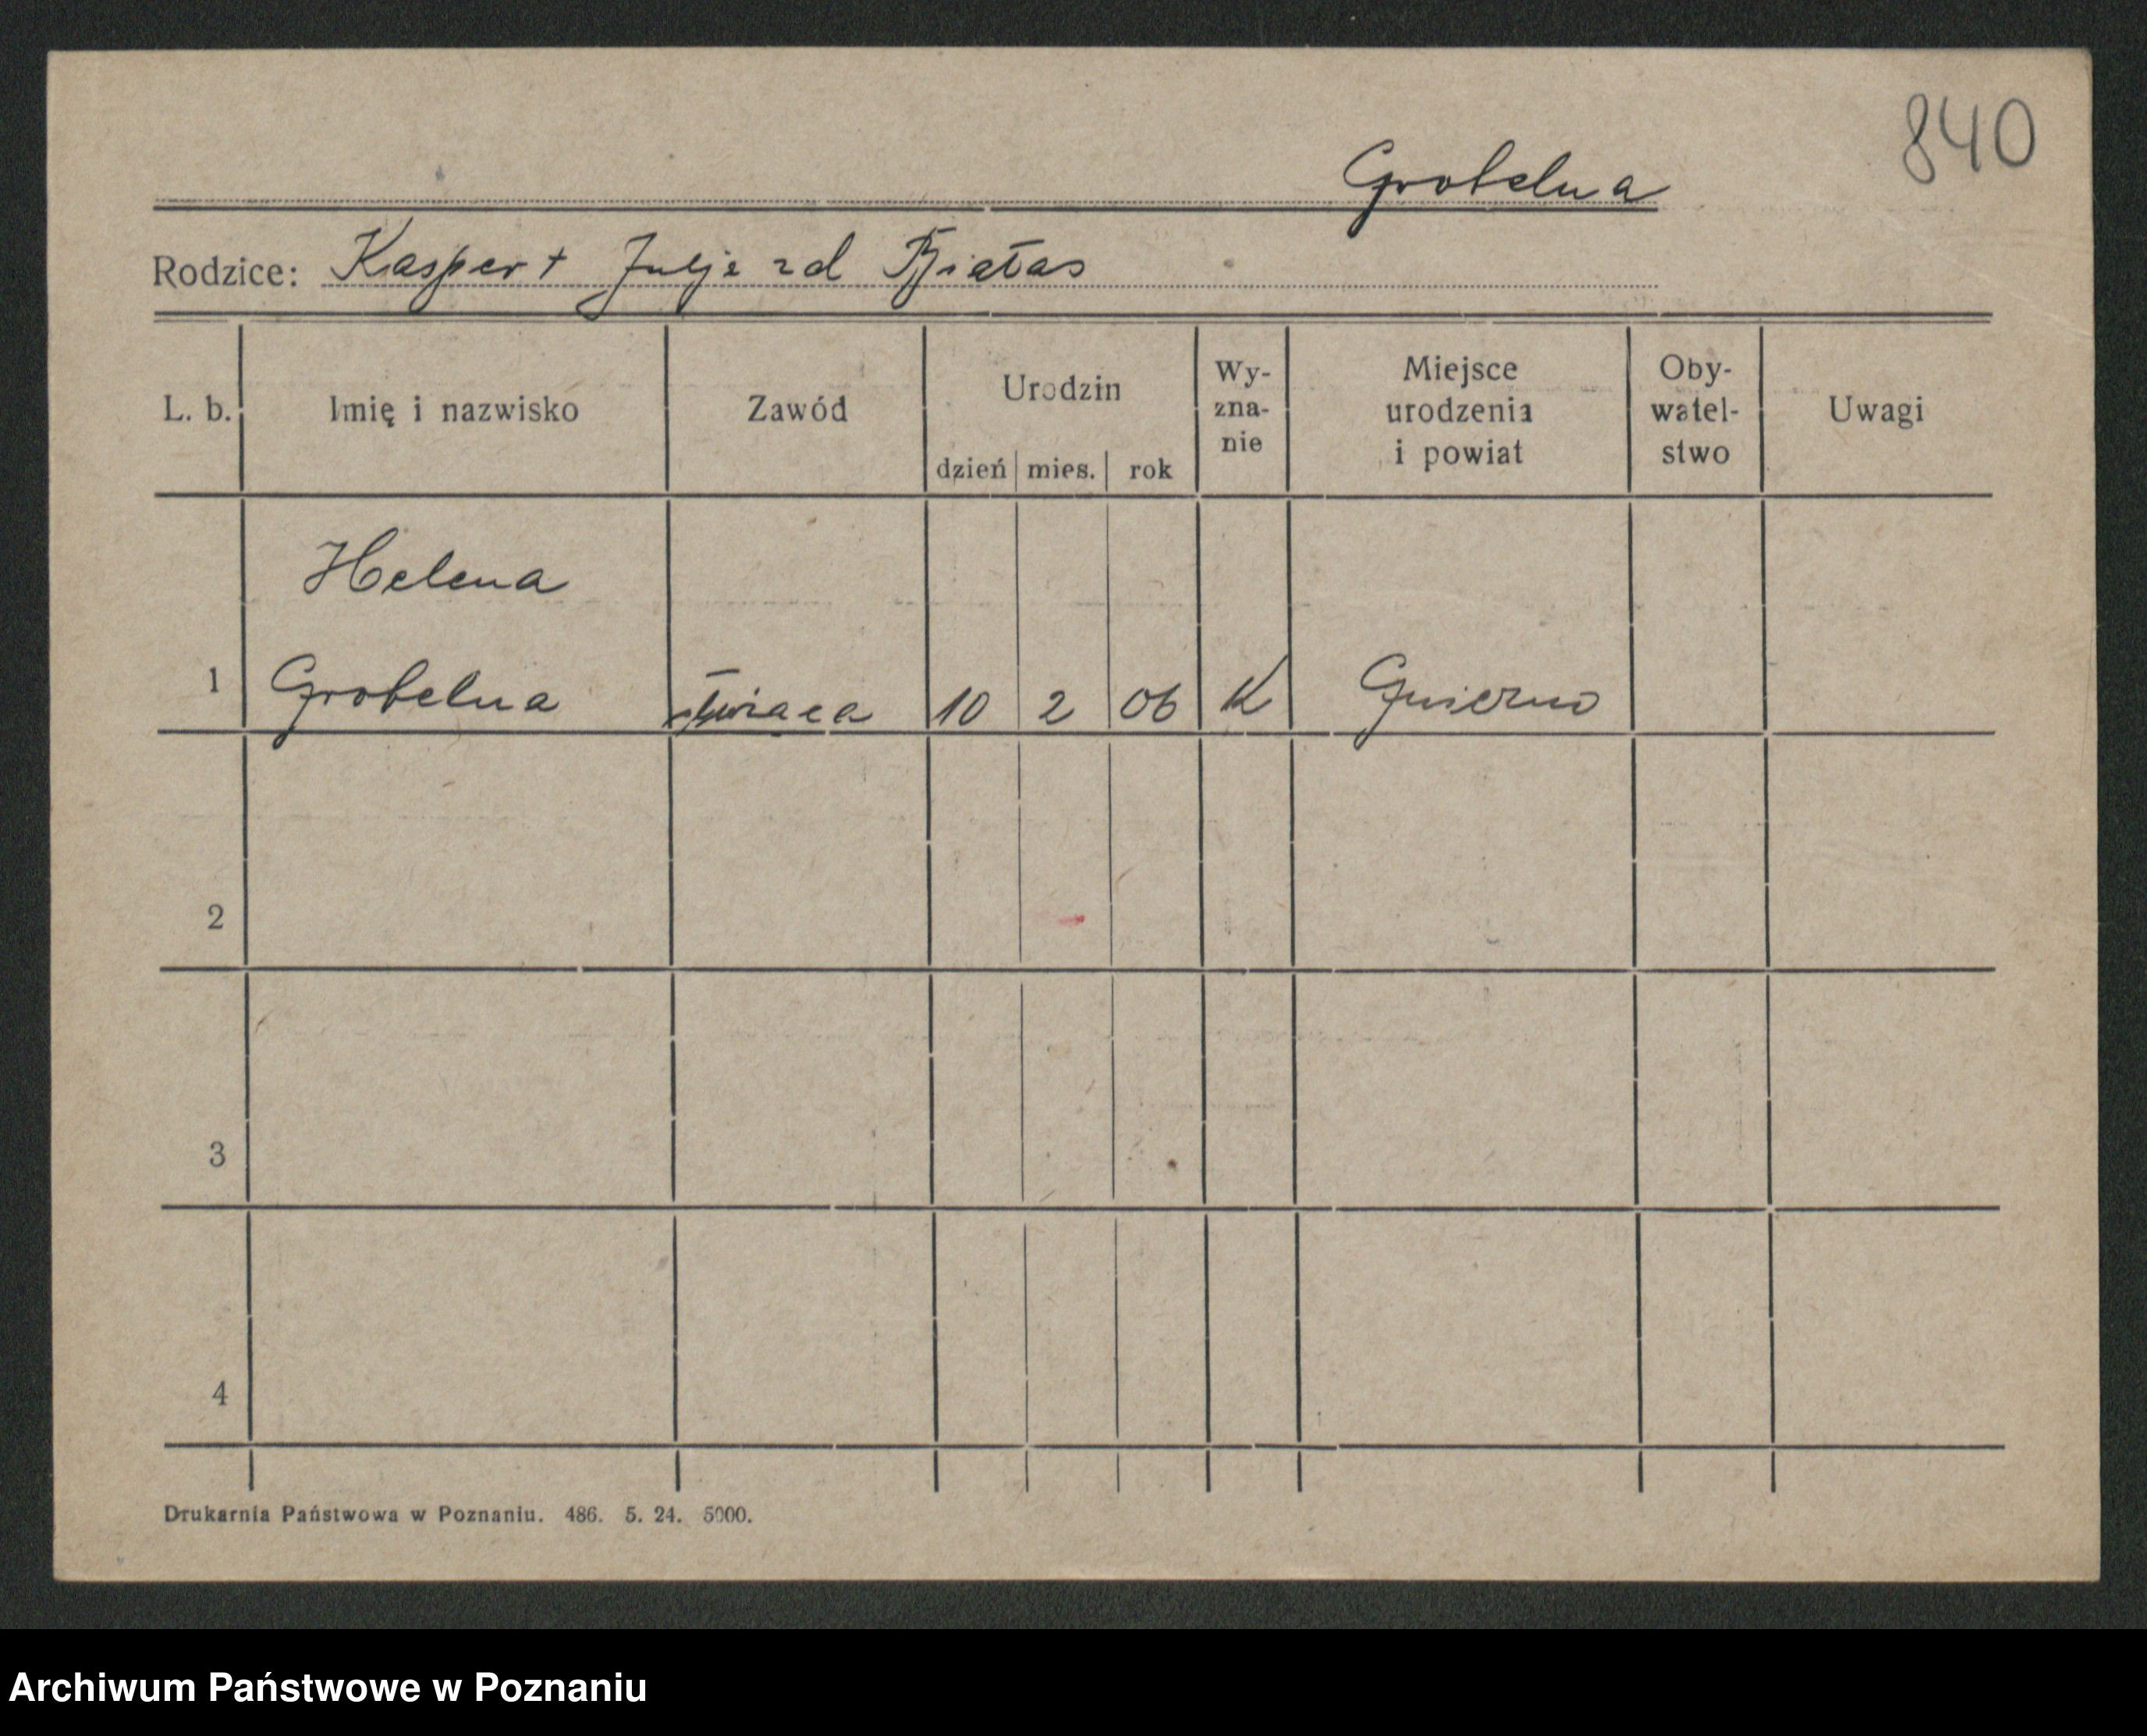 840
Grobelna
Rodzice: Kasper + Julja zd Białas
L. b. Imię i nazwisko Zawód Urodzin dzień mies. rok Wy-zna-nie Miejsce urodzenia i powiat Oby-watel-stwo Uwagi
Helena
1 Grobelna 10 2 06 K Gniezno
2
3
4
Drukarnia Państwowa w Poznaniu. 486. 5. 24. 5000.
Archiwum Państwowe w Poznaniu